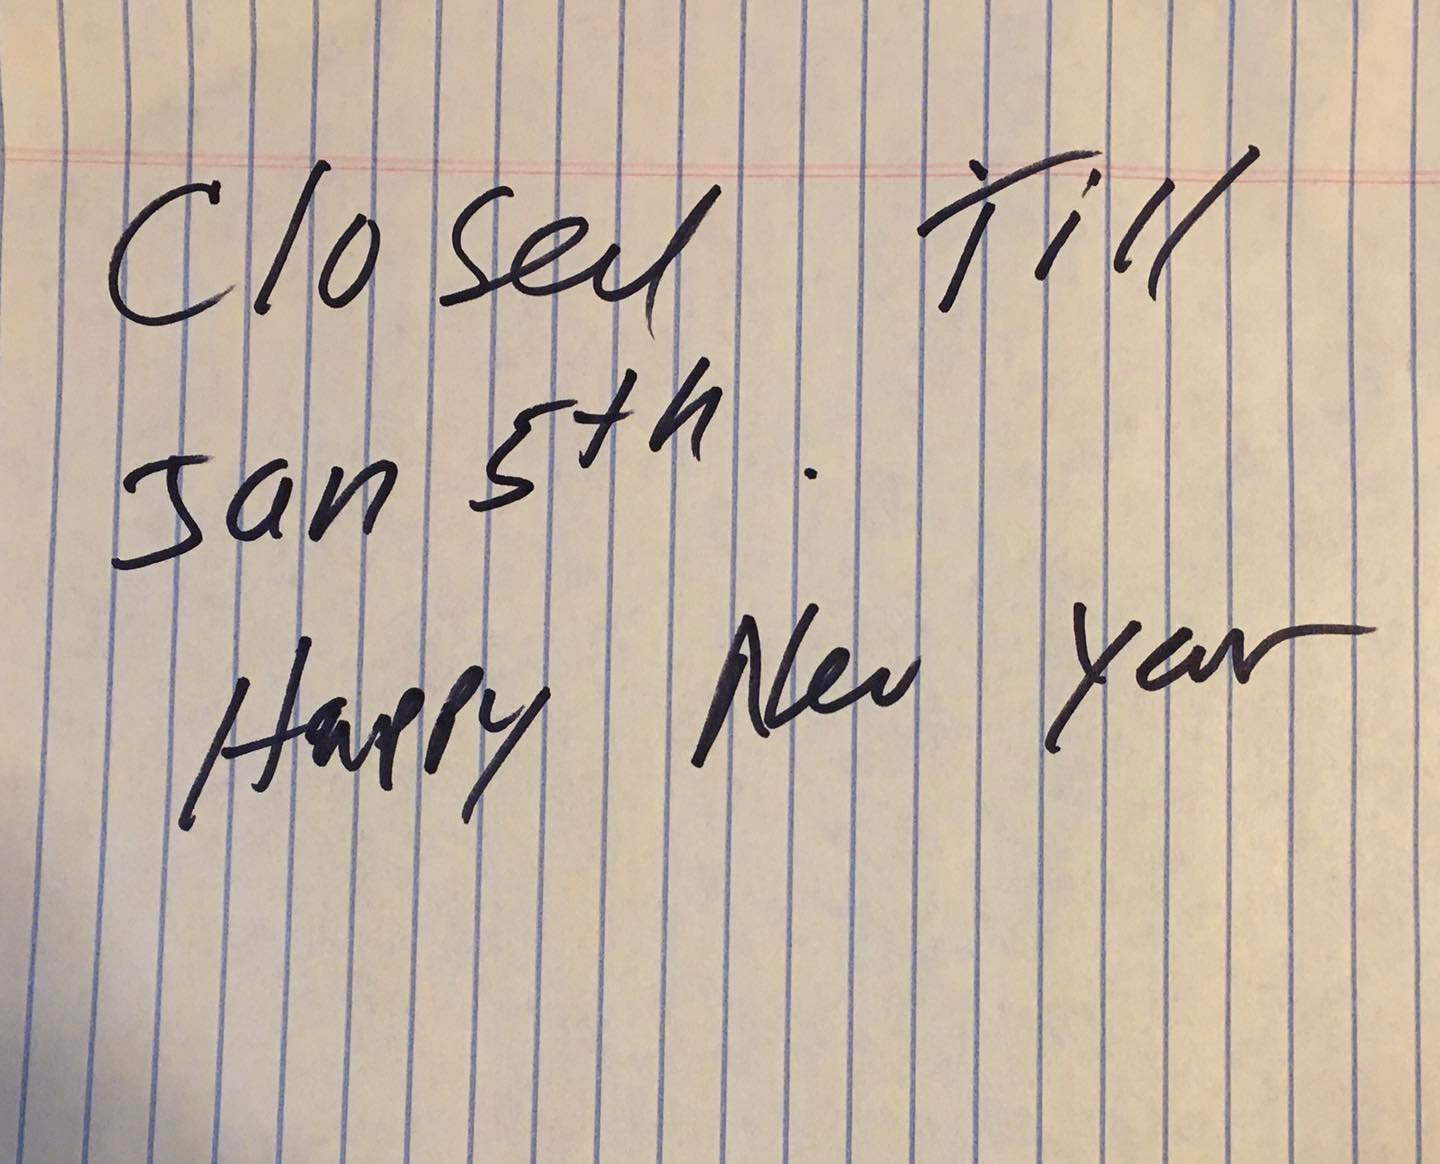 Closed Till
Jan 5th.
Happy New Year